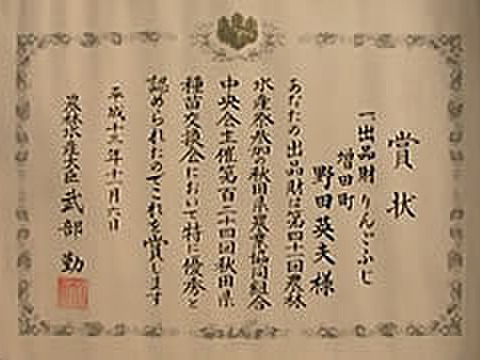 賞状
一出品財 りんごふじ
増田町
野田英夫様
あなたの出品財は第四十一回農林
水産祭参加の秋田県農業協同組合
中央会主催第百二十四回秋田県
種苗交換会において特に優秀と
認められたのでこれを賞します
平成十三年十一月六日
農林水産大臣 武部 勤